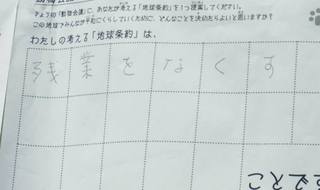 きょうの「動物会議」に、あなたが考える「地球条約」を1つ提案してください。
この地球でみんなが平和にくらしていくために、どんなことを決めたらよいと思いますか?
わたしの考える「地球条約」は、
残業をなくす